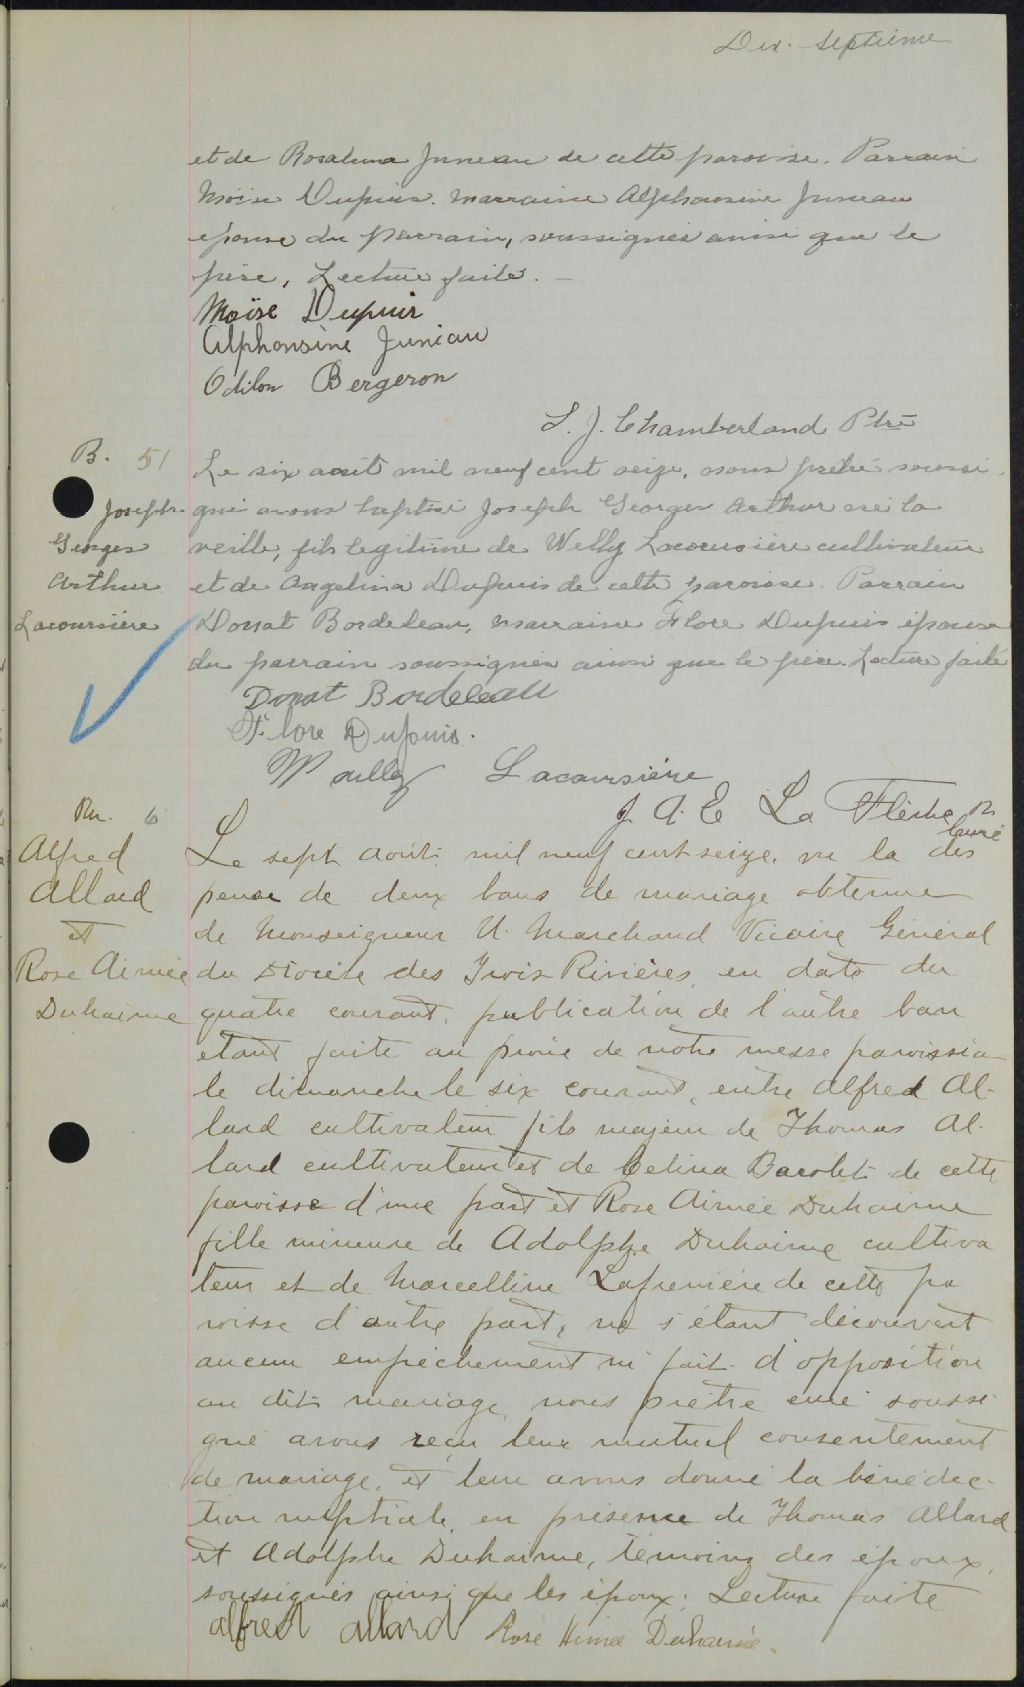 Dix-Septième
et de Rosaluna Juneau de cette paroisse. Parrain
Moïse Dupuis. marraine Alphonsine Juneau
epouse du parrain, soussignés ainsi que le
père, Lecture faite. -
Moïse Dupuis
Alphonsine Juneau
Odilon Bergeron
S. J. Chamberland Ptre
B. 51
Joseph
Georges
Arthur
Lacoursière
Le six août mil neuf cent seize, nous prêtre soussi-
gné avons baptisé Joseph Georges Arthur né la
veille, fils legitime de Welly Lacoursière cultivateur
et de Angelina Dupuis de cette paroisse. Parrain
Donat Bordeleau, marraine Flore Dupuis épouse
du parrain soussignés ainsi que le père. Lecture faite
Donat Bordeleau
Flore Dupuis.
Wailly Lacoursière
J. A. E La Flèche
curé
M. 6
Alfred
Allard
et
Rose Aimée
Duhaime
Le sept août mil neuf cent seize, vu la dis
pense de deux bans de mariage obtenue
de Monseigneur U. Marchand Vicaire Général
du Diocèse des Trois Rivières, en date du
quatre courant, publication de l'autre ban
etant faite au prone de notre messe paroissia
le dimanche le six courant, entre Alfred Al-
lard cultivateur fils majeur de Thomas Al-
lard cultivateur et de Celina Barolet de cette
paroisse d'une part et Rose Aimée Duhaime
fille mineure de Adolphe Duhaime cultiva
teur et de Marcelline Lafrenière de cette pa
roisse d'autre part, ne s'étant découvert
aucun empêchement ni fait d'opposition
au dit mariage, nous prêtre curé soussi
gné avons reçu leur mutuel consentement
de mariage, et leur avons donné la bénédic-
tion nuptiale, en présence de Thomas Allard
et Adolphe Duhaime, témoins des époux,
soussignés ainsi que les époux; Lecture faite
alfred allard Rose Aimée Duhaime.